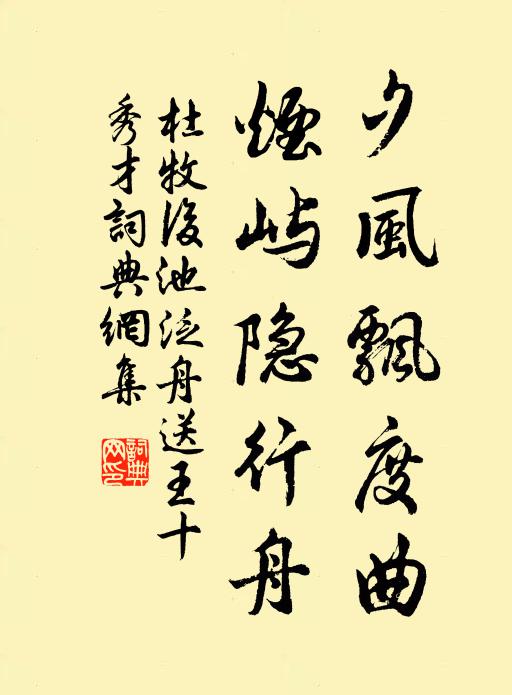 夕風飄度曲
煙屿隐行舟
杜牧後池泛舟送王十
秀才詞典網集
詞典网印